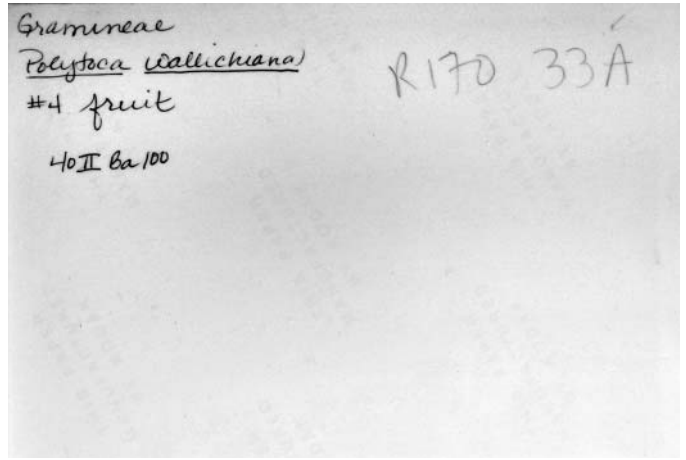 Gramineae
Polytoca wallichiana
#4 fruit
40 II Ba 100
R170 33A